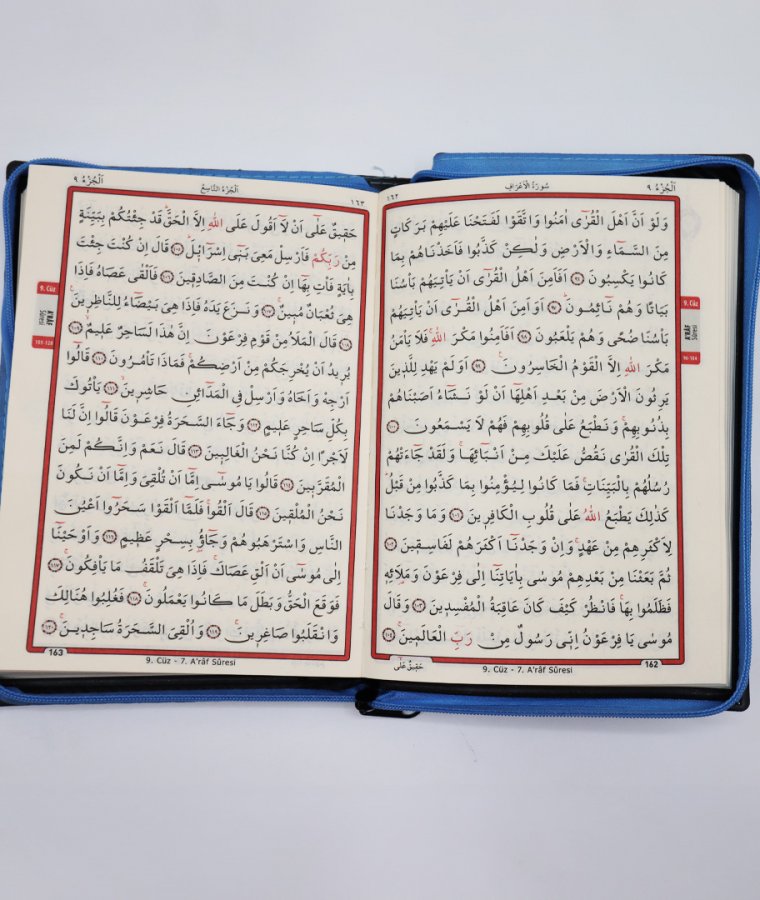 اَلْجُزْءُ ٩
سُورَةُ الْاَعْرَافِ
١٦٢
وَلَوْ اَنَّ اَهْلَ الْقُرٰٓى اٰمَنُوا وَاتَّقَوْا لَفَتَحْنَا عَلَيْهِمْ بَرَكَاتٍ
مِنَ السَّمَٓاءِ وَالْاَرْضِ وَلٰكِنْ كَذَّبُوا فَاَخَذْنَاهُمْ بِمَا
كَانُوا يَكْسِبُونَ ﴿٩٦﴾ اَفَاَمِنَ اَهْلُ الْقُرٰٓى اَنْ يَأْتِيَهُمْ بَأْسُنَا
بَيَاتًا وَهُمْ نَٓائِمُونَۜ ﴿٩٧﴾ اَوَاَمِنَ اَهْلُ الْقُرٰٓى اَنْ يَأْتِيَهُمْ
بَأْسُنَا ضُحًى وَهُمْ يَلْعَبُونَ ﴿٩٨﴾ اَفَاَمِنُوا مَكْرَ اللهِۚ فَلَا يَأْمَنُ
مَكْرَ اللهِ اِلَّا الْقَوْمُ الْخَاسِرُونَ۟ ﴿٩٩﴾ اَوَلَمْ يَهْدِ لِلَّذٖينَ
يَرِثُونَ الْاَرْضَ مِنْ بَعْدِ اَهْلِهَٓا اَنْ لَوْ نَشَٓاءُ اَصَبْنَاهُمْ
بِذُنُوبِهِمْۚ وَنَطْبَعُ عَلٰى قُلُوبِهِمْ فَهُمْ لَا يَسْمَعُونَ ﴿١٠٠﴾
تِلْكَ الْقُرٰى نَقُصُّ عَلَيْكَ مِنْ اَنْبَٓائِهَاۚ وَلَقَدْ جَٓاءَتْهُمْ
رُسُلُهُمْ بِالْبَيِّنَاتِۚ فَمَا كَانُوا لِيُؤْمِنُوا بِمَا كَذَّبُوا مِنْ قَبْلُۜ
كَذٰلِكَ يَطْبَعُ اللهُ عَلٰى قُلُوبِ الْكَافِرٖينَ ﴿١٠١﴾ وَمَا وَجَدْنَا
لِاَكْثَرِهِمْ مِنْ عَهْدٍۚ وَاِنْ وَجَدْنَٓا اَكْثَرَهُمْ لَفَاسِقٖينَ ﴿١٠٢﴾
ثُمَّ بَعَثْنَا مِنْ بَعْدِهِمْ مُوسٰى بِاٰيَاتِنَٓا اِلٰى فِرْعَوْنَ وَمَلَا۬ئِهٖ
فَظَلَمُوا بِهَاۚ فَانْظُرْ كَيْفَ كَانَ عَاقِبَةُ الْمُفْسِدٖينَ ﴿١٠٣﴾ وَقَالَ
مُوسٰى يَا فِرْعَوْنُ اِنّٖى رَسُولٌ مِنْ رَبِّ الْعَالَمٖينَۙ ﴿١٠٤﴾
9. Cüz
A'RÂF
Sûresi
96-104
162
9. Cüz - 7. A'râf Sûresi
حَقٖيقٌ عَلٰٓى
اَلْجُزْءُ ٩
اَلْجُزْءُ التَّاسِعُ
١٦٣
حَقٖيقٌ عَلٰٓى اَنْ لَٓا اَقُولَ عَلَى اللهِ اِلَّا الْحَقَّۜ قَدْ جِئْتُكُمْ بِبَيِّنَةٍ
مِنْ رَبِّكُمْ فَاَرْسِلْ مَعِىَ بَنٖٓى اِسْرَٓائٖلَۜ ﴿١٠٥﴾ قَالَ اِنْ كُنْتَ جِئْتَ
بِاٰيَةٍ فَأْتِ بِهَٓا اِنْ كُنْتَ مِنَ الصَّادِقٖينَ ﴿١٠٦﴾ فَاَلْقٰى عَصَاهُ فَاِذَا
هِىَ ثُعْبَانٌ مُبٖينٌۚ ﴿١٠٧﴾ وَنَزَعَ يَدَهُ فَاِذَا هِىَ بَيْضَٓاءُ لِلنَّاظِرٖينَ۟
﴿١٠٨﴾ قَالَ الْمَلَاُ مِنْ قَوْمِ فِرْعَوْنَ اِنَّ هٰذَا لَسَاحِرٌ عَلٖيمٌۙ ﴿١٠٩﴾
يُرٖيدُ اَنْ يُخْرِجَكُمْ مِنْ اَرْضِكُمْۚ فَمَاذَا تَأْمُرُونَ ﴿١١٠﴾ قَالُٓوا
اَرْجِهْ وَاَخَاهُ وَاَرْسِلْ فِى الْمَدَٓائِنِ حَاشِرٖينَۙ ﴿١١١﴾ يَأْتُوكَ
بِكُلِّ سَاحِرٍ عَلٖيمٍ ﴿١١٢﴾ وَجَٓاءَ السَّحَرَةُ فِرْعَوْنَ قَالُٓوا اِنَّ لَنَا
لَاَجْرًا اِنْ كُنَّا نَحْنُ الْغَالِبٖينَ ﴿١١٣﴾ قَالَ نَعَمْ وَاِنَّكُمْ لَمِنَ
الْمُقَرَّبٖينَ ﴿١١٤﴾ قَالُوا يَا مُوسٰٓى اِمَّٓا اَنْ تُلْقِىَ وَاِمَّٓا اَنْ نَكُونَ
نَحْنُ الْمُلْقٖينَ ﴿١١٥﴾ قَالَ اَلْقُواۚ فَلَمَّٓا اَلْقَوْا سَحَرُٓوا اَعْيُنَ
النَّاسِ وَاسْتَرْهَبُوهُمْ وَجَٓاؤُ۫ بِسِحْرٍ عَظٖيمٍ ﴿١١٦﴾ وَاَوْحَيْنَٓا
اِلٰى مُوسٰٓى اَنْ اَلْقِ عَصَاكَۚ فَاِذَا هِىَ تَلْقَفُ مَا يَأْفِكُونَۚ ﴿١١٧﴾
فَوَقَعَ الْحَقُّ وَبَطَلَ مَا كَانُوا يَعْمَلُونَۚ ﴿١١٨﴾ فَغُلِبُوا هُنَالِكَ
وَانْقَلَبُوا صَاغِرٖينَۚ ﴿١١٩﴾ وَاُلْقِىَ السَّحَرَةُ سَاجِدٖينَۚ ﴿١٢٠﴾
9. Cüz
A'RÂF
Sûresi
105-120
163
9. Cüz - 7. A'râf Sûresi